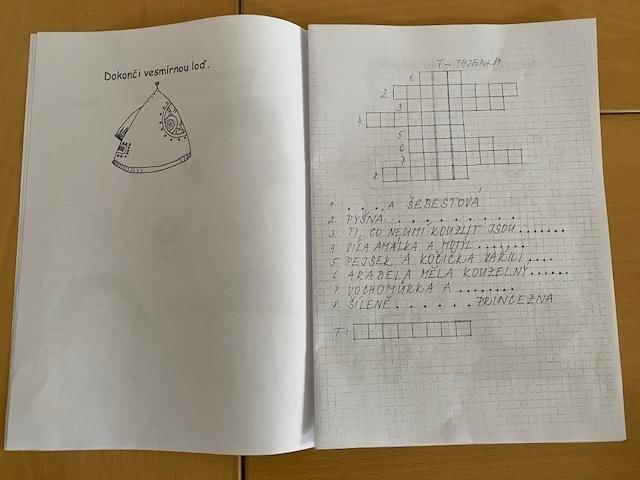 Dokonči vesmírnou loď.
T - TAJENKA
1.
2.
3
4.
5
6
7
8.
1 . . . . A ŠEBESTOVÁ
2. PYŠNÁ . . . . . . . . . .
3 TI, CO NEUMÍ KOUZLIT JSOU . . . . . . .
4 VÍLA AMÁLKA A MOTÝL . . . . . . .
5 PEJSEK A KOČIČKA VAŘILI . . . .
6 ARABELA MĚLA KOUZELNÝ . . . . .
7 VOCHOMŮRKA A . . . . . . . .
8. ŠÍLENĚ . . . . . . . PRINCEZNA
T: